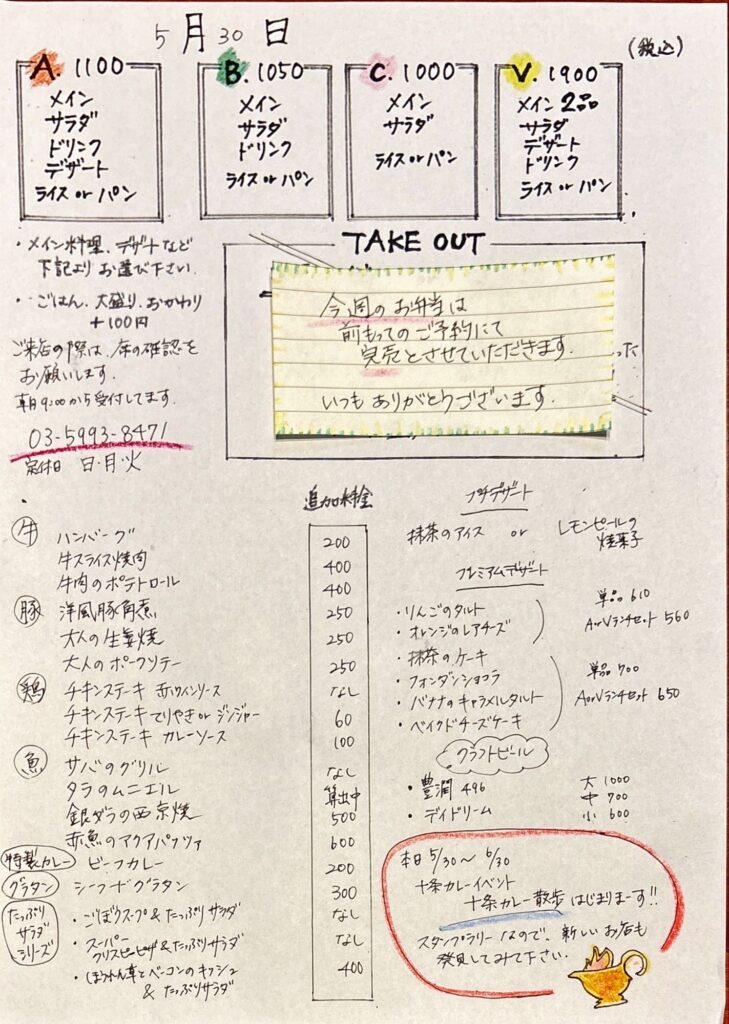 5月30日
(税込)
A. 1100
メイン
サラダ
ドリンク
デザート
ライス or パン
B. 1050
メイン
サラダ
ドリンク
ライス or パン
C. 1000
メイン
サラダ
ライス or パン
V. 1900
メイン 2品
サラダ
デザート
ドリンク
ライス or パン
・メイン料理、デザートなど
下記よりお選び下さい.
・ごはん、大盛り、おかわり
+100円
ご来店の際は、席の確認を
お願いします.
朝9:00から受付してます.
03-5993-8471
定休日 日・月・火
TAKE OUT
今週のお弁当は
前もってのご予約にて
完売とさせていただきます.
いつもありがとうございます.
った
追加料金
牛 ハンバーグ 200
牛スライス焼肉 400
牛肉のポテトロール 400
豚 洋風豚角煮 250
大人の生姜焼 250
大人のポークソテー 250
鶏 チキンステーキ 赤ワインソース なし
チキンステーキ てりやき or ジンジャー 60
チキンステーキ カレーソース 100
魚 サバのグリル なし
タラのムニエル 算出中
銀ダラの西京焼 500
赤魚のアクアパッツァ 600
特製カレー ビーフカレー 200
グラタン シーフードグラタン 300
たっぷり
サラダ
シリーズ
・ごぼうスープ & たっぷりサラダ なし
・スーパー
クリスピーピザ & たっぷりサラダ なし
・ほうれん草とベーコンのキッシュ 400
& たっぷりサラダ
プチデザート
抹茶のアイス or レモンピールの
焼菓子
プレミアムデザート
・りんごのタルト
・オレンジのレアチーズ
単品 610
AorVランチセット 560
・抹茶のケーキ
・フォンダンショコラ
・バナナのキャラメルタルト
・ベイクドチーズケーキ
単品 700
AorVランチセット 650
クラフトビール
・豊潤 496
・デイドリーム
大 1000
中 700
小 600
本日 5/30〜 6/30
十条カレーイベント
十条カレー散歩 はじまりまーす!!
スタンプラリーなので、新しいお店も
発見してみて下さい.